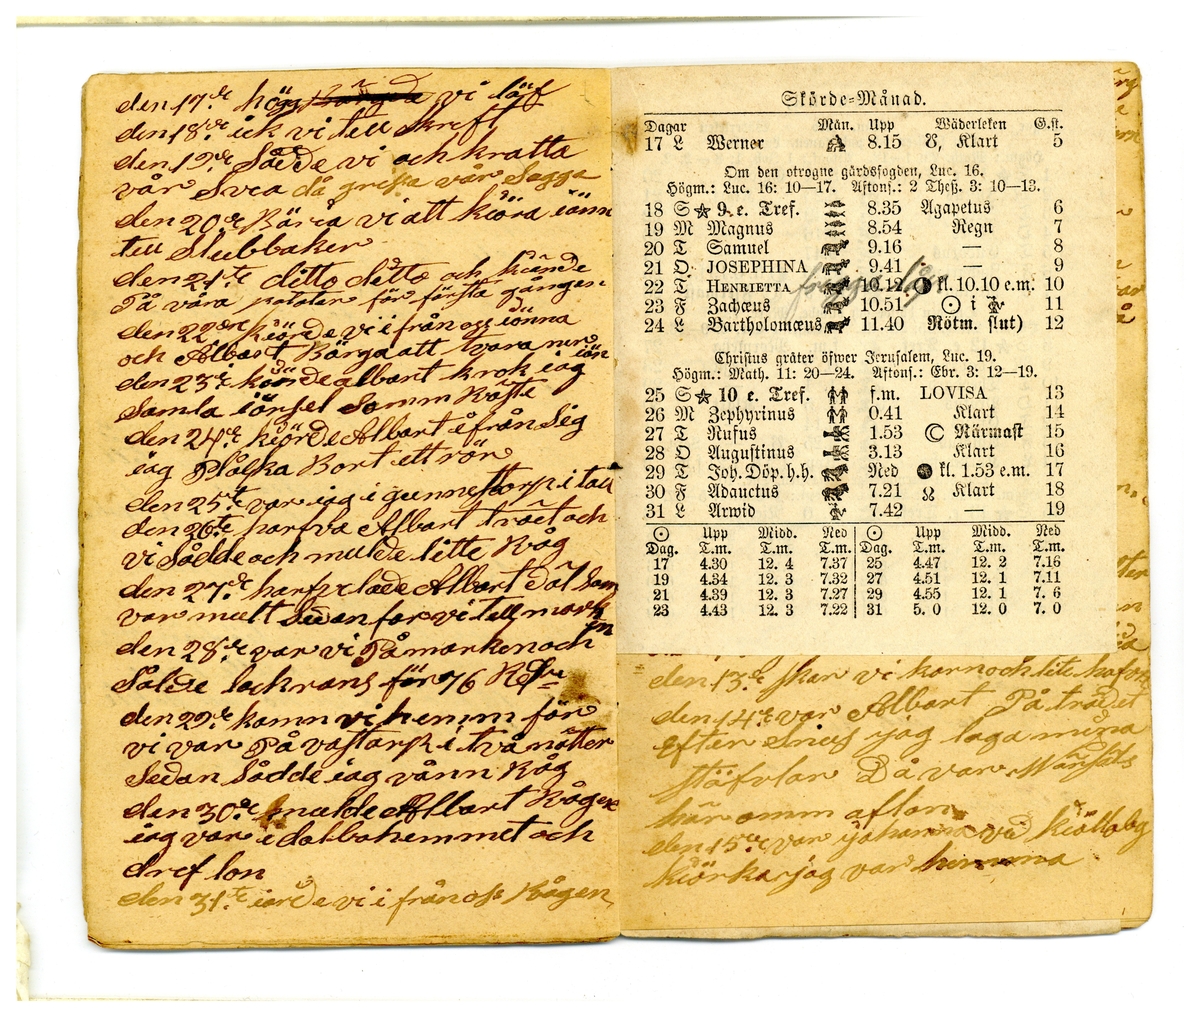 den 17de högg vi löf
den 18de ick vi till skreft
den 19de Sådde vi och kratta
vår Svea då grisa vår Sugga
den 20de Böria vi att kiöra iänn
till Stubbaker
den 21te ditto ditto och kiände
På våra potater för första gången
den 22dre kiörde vi ifrån oss iönna
och Albart Bärga att vara
den 23i kiörde albart krok iag
Samla iönsel Samm Räfte
den 24de kiörde Albart ifrån Sig
iag Plåcka Bort ett rör
den 25te var iag i gunnestorp i tall
den 26te harfva Albart träet och
vi Sådde och mulde litte Råg
den 27de harfvelade Albart Då Som
var mult Sedan for vi till mark
en
den 28de var vi På marken och
Sålde lockrans för 76 Rdr
den 29de kamn vi hemm för
vi var På vastarp i två nätter
Sedan Sådde iag vånn Råg
den 30de mulde Albart Rågen
iag var i dalbohemmet och
dref lon
den 31te iärde vi ifrån oss Rågen
Skörde-Månad.
Dagar Mån. Upp Wäderleken G.st.
17 L Werner 8.15 ☋, Klart 5
Om den otrogne gårdsfogden, Luc. 16.
Högm.: Luc. 16: 10—17. Aftons.: 2 Theß. 3: 10—13.
18 S ☆ 9 e. Tref. 8.35 Agapetus 6
19 M Magnus 8.54 Regn 7
20 T Samuel 9.16 — 8
21 O JOSEPHINA 9.41 — 9
22 T HENRIETTA 10.12 ● kl. 10.10 e.m. 10
23 F Zachæus 10.51 ☉ i 11
24 L Bartholomæus 11.40 Rötm. slut) 12
Christus gråter öfwer Jerusalem, Luc. 19.
Högm.: Math. 11: 20—24. Aftons.: Ebr. 3: 12—19.
25 S ☆ 10 e. Tref. f.m. LOVISA 13
26 M Zephyrinus 0.41 Klart 14
27 T Rufus 1.53 ☾ Närmast 15
28 O Augustinus 3.13 Klart 16
29 T Joh. Döp. h.h. Ned ● kl. 1.53 e.m. 17
30 F Adauctus 7.21 ☊ Klart 18
31 L Arwid 7.42 — 19
☉ Upp Midd. Ned ☉ Upp Midd. Ned
Dag. T.m. T.m. T.m. Dag. T.m. T.m. T.m.
17 4.30 12. 4 7.37 25 4.47 12. 2 7.16
19 4.34 12. 3 7.32 27 4.51 12. 1 7.11
21 4.39 12. 3 7.27 29 4.55 12. 1 7. 6
23 4.43 12. 3 7.22 31 5. 0 12. 0 7. 0
den 13de sker vi korn och lite hafra
den 14de var Albart På trädet
Efter Snus jag laga mina
stöflar Då var
här omm afton
den 15de var
kiörka jag var himma